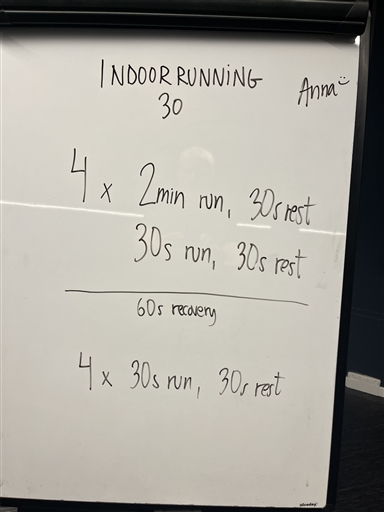 INDOOR RUNNING
30
Anna
4 x 2min run, 30s rest
30s run, 30s rest
60s recovery
4 x 30s run, 30s rest